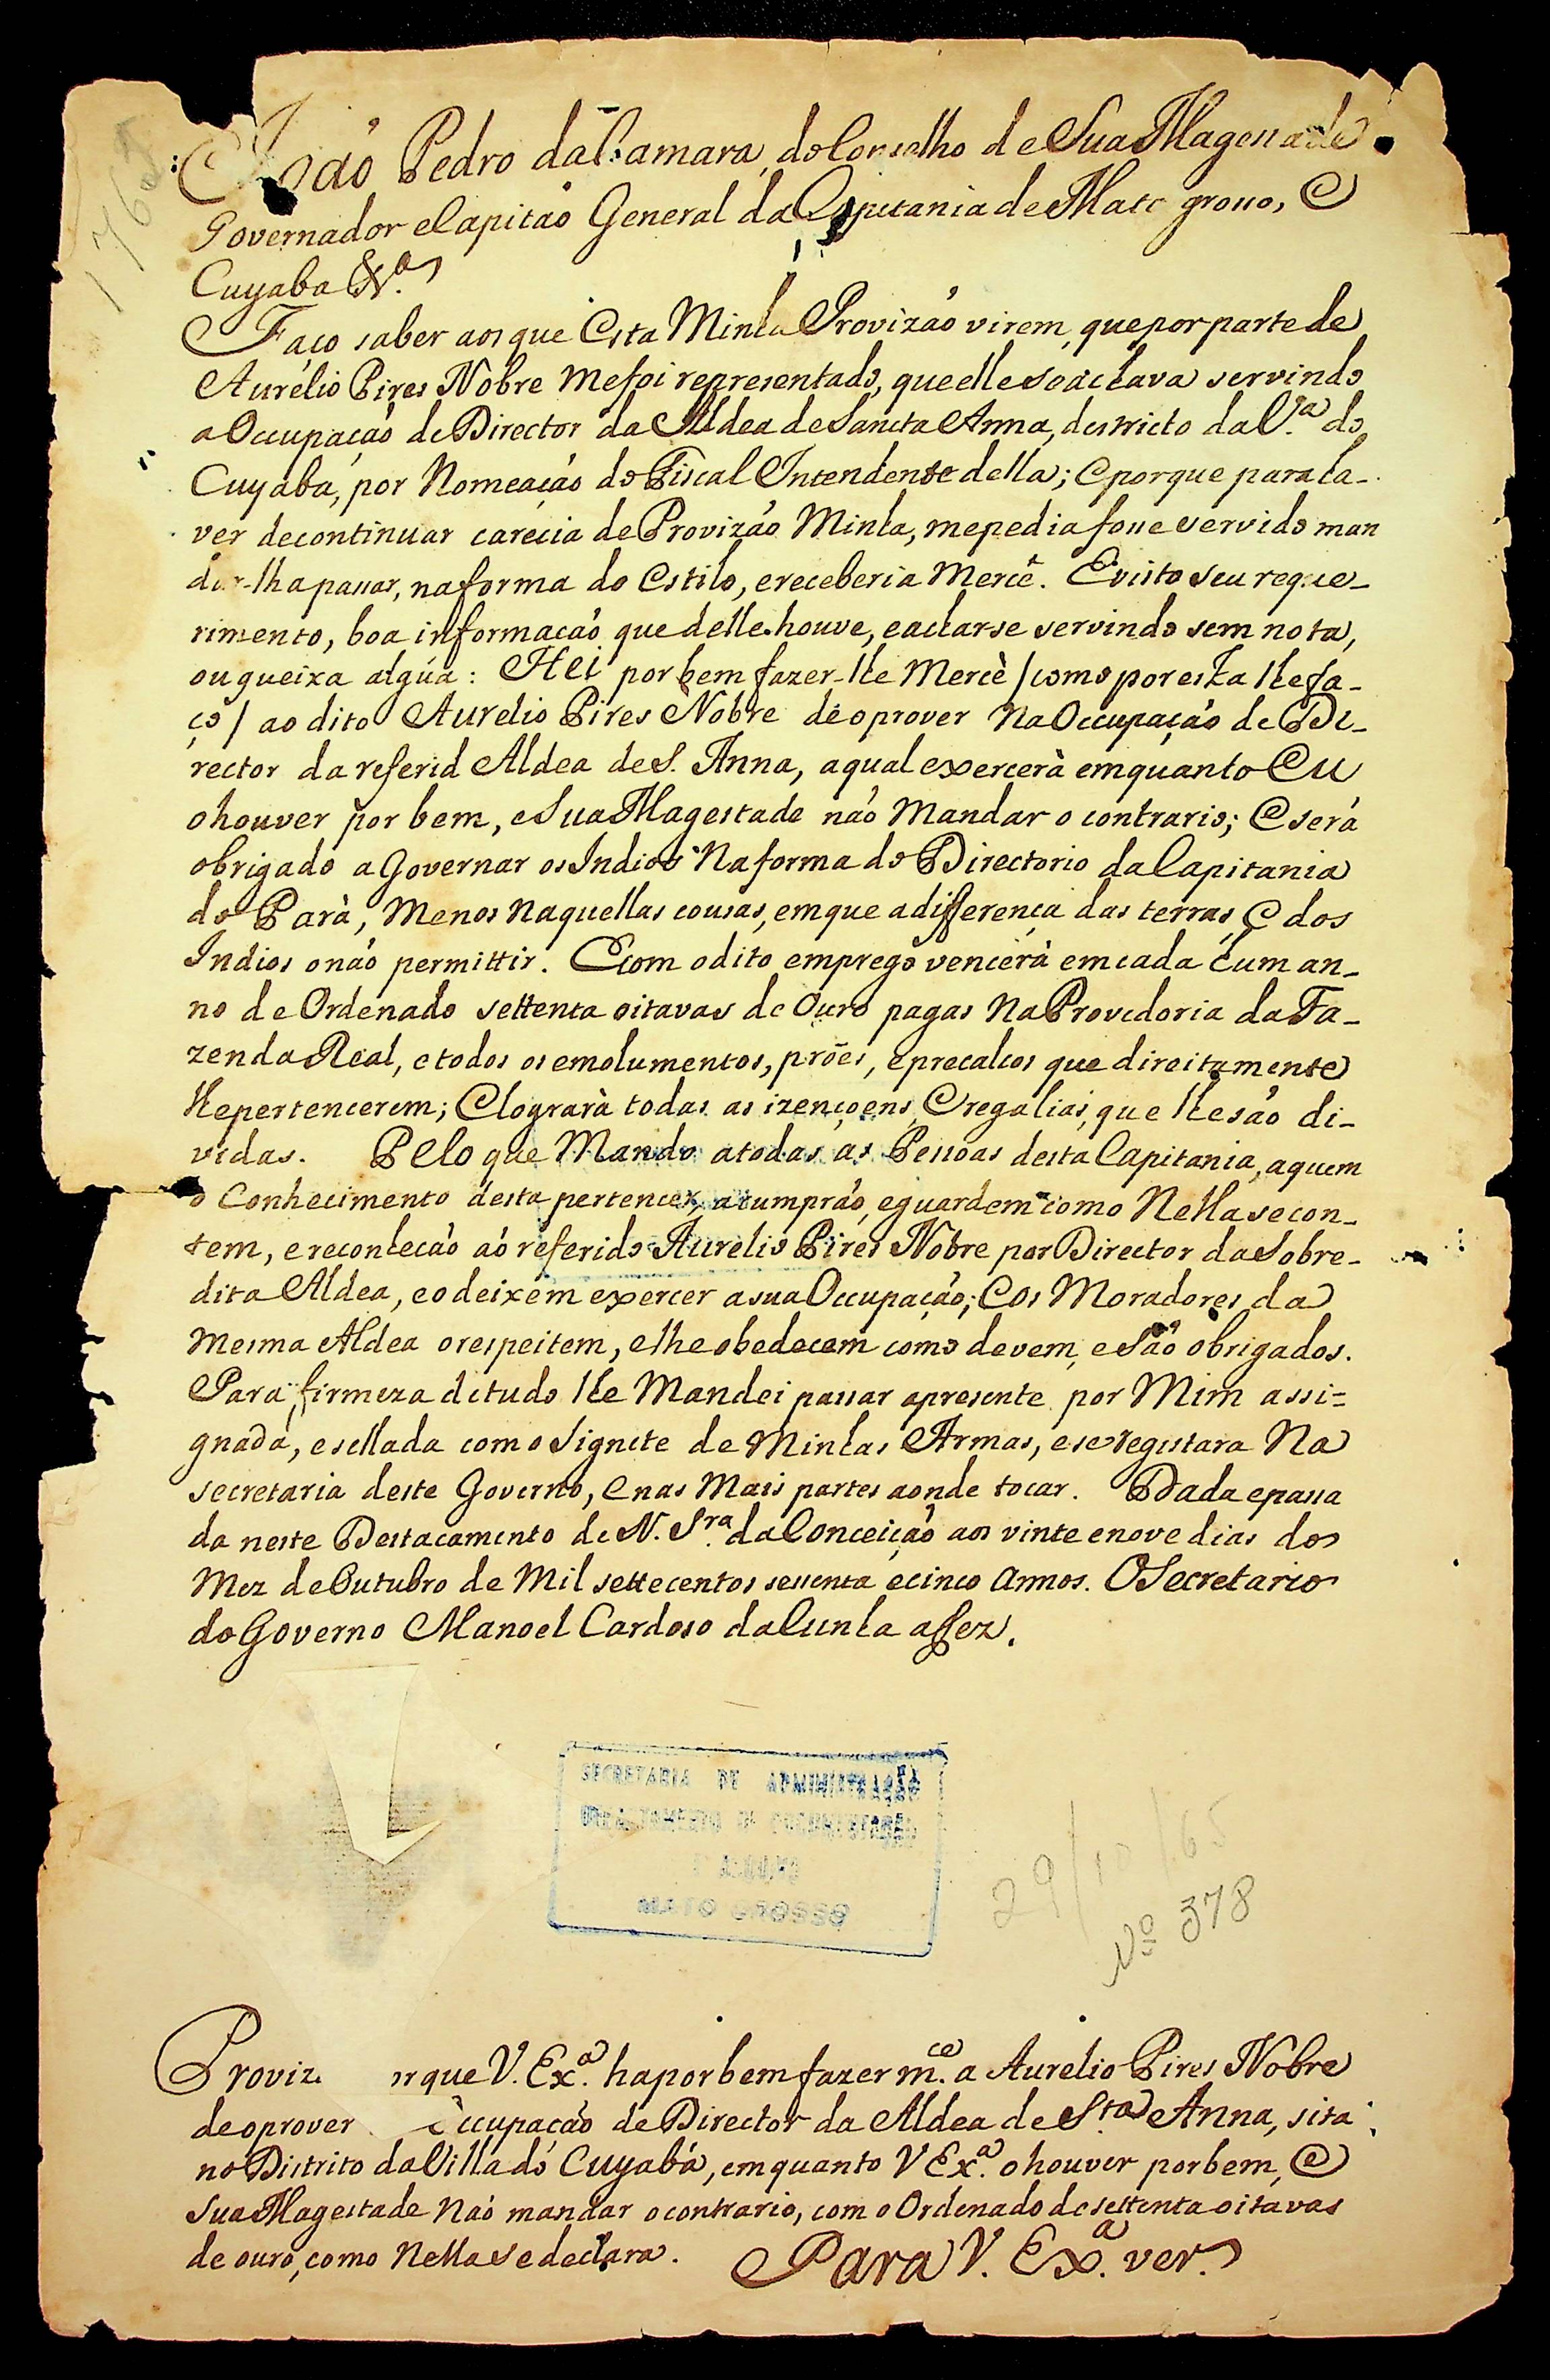 1765
João Pedro da Camara, do Conselho de Sua Magestade
Governador e Capitaõ General da Capitania de Mato grosso, E
Cuyaba &.ª
Faço saber aos que Esta Minha Provizaõ virem, que por parte de
Aurélio Pires Nobre me foi representado, que elle se achava servindo
a Occupaçaõ de Director da Aldea de Sancta Anna, destricto da V.ª do
Cuyabá, por Nomeaçaõ do Fiscal Intendente della; E porque para ha-
ver de continuar carecia de Provizaõ Minha, me pedia fosse servido man
dar-lha passar, na forma do Estilo, e receberia Mercê. E visto seu reque-
rimento, boa informacaõ que delle houve, e achar-se servindo sem nota,
ou queixa algúa: Hei por bem fazer-lhe Mercè / como por esta lhe fa-
ço / ao dito Aurelio Pires Nobre de o prover Na Occupaçaõ de Di-
rector da referid Aldea de S. Anna, a qual exercerà emquanto Eu
o houver por bem, e Sua Magestade naõ Mandar o contrario; E será
obrigado a Governar os Indios Na forma do Directorio da Capitania
do Parà, Menos Naquellas cousas, em que a differença das terras, E dos
Indios o naõ permittir. E com o dito emprego vencerà em cada hum an-
no de Ordenado settenta oitavas de Ouro pagas Na Provedoria da Fa-
zenda Real, e todos os emolumentos, prões, e precalcos que direitamente
lhe pertencerem; E lograrà todas as izençoens, E regalias, que lhe saõ di-
vidas. Pelo que Mando a todas as Pessoas desta Capitania, a quem
o Conhecimento desta pertencer, a cumpraõ, e guardem como Nella se con-
tem, e reconhecaõ aó referido Aurelio Pires Nobre por Director da Sobre-
dita Aldea, e o deixem exercer a sua Occupaçaõ; E os Moradores da
Mesma Aldea o respeitem, e lhe obedecem como devem, e Saõ obrigados.
Para firmeza de tudo lhe Mandei passar a presente por Mim assi=
gnada, e sellada com o Signete de Minhas Armas, e se registara Na
secretaria deste Governo, e nas Mais partes aonde tocar. Dada e passa
da neste Destacamento de N. Sra. da Conceiçaõ aos vinte e nove dias do
Mez de Outubro de Mil settecentos sessenta e cinco annos. O Secretario
do Governo Manoel Cardoso da Cunha a fez.
SECRETARIA DE ADMINISTRAÇÃO
MATO GROSSO
29/10/65
Nº 378
Proviz que V. Ex.ª ha por bem fazer m.ce a Aurelio Pires Nobre
de o prover ccupacaõ de Director da Aldea de Sta. Anna, sita
no Distrito da Villa do Cuyabá, em quanto V Ex.ª o houver por bem, E
Sua Magestade Naõ mandar o contrario, com o Ordenado de settenta oitavas
de ouro, como Nella se declara. Para V. Ex.ª ver.